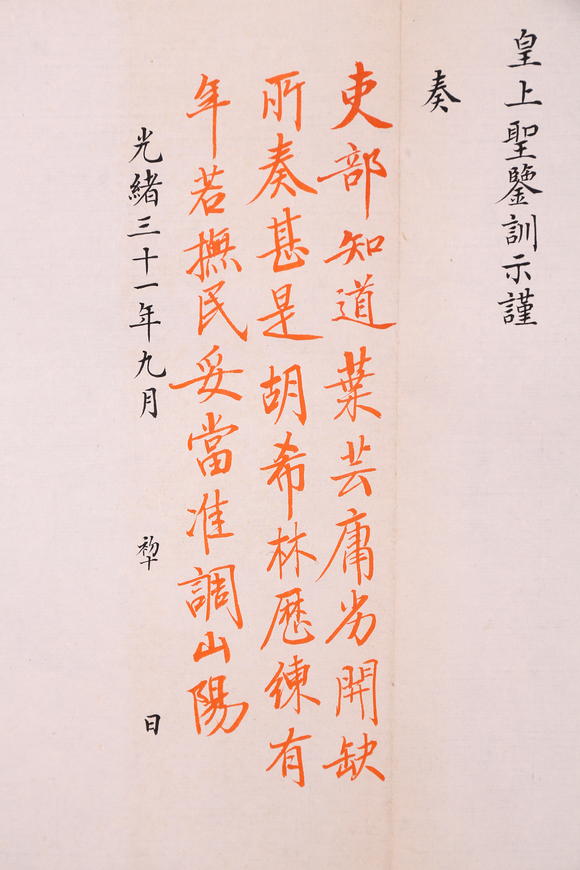 皇上聖鑒訓示謹
奏
吏部知道葉芸庸劣開缺
所奏甚是胡希林歷練有
年若撫民妥當准調山陽
光緒三十一年九月初十日